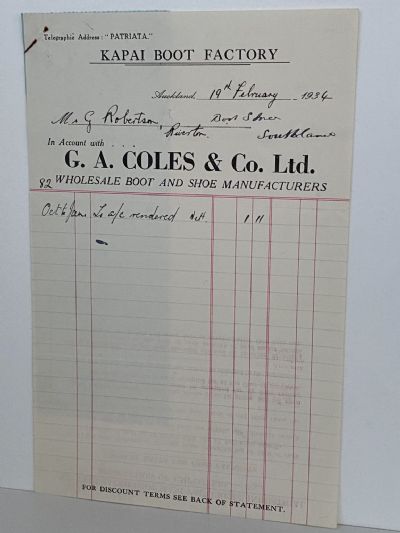 Telegraphic Address: "PATRIATA."
KAPAI BOOT FACTORY
Auckland, 19th February 1934
Mr G Robertson, Boot Store
Riverton, Southland
In Account with . . . .
G. A. COLES & Co. Ltd.
82 WHOLESALE BOOT AND SHOE MANUFACTURERS
Oct to Jan To a/c rendered Nett 1 11
FOR DISCOUNT TERMS SEE BACK OF STATEMENT.